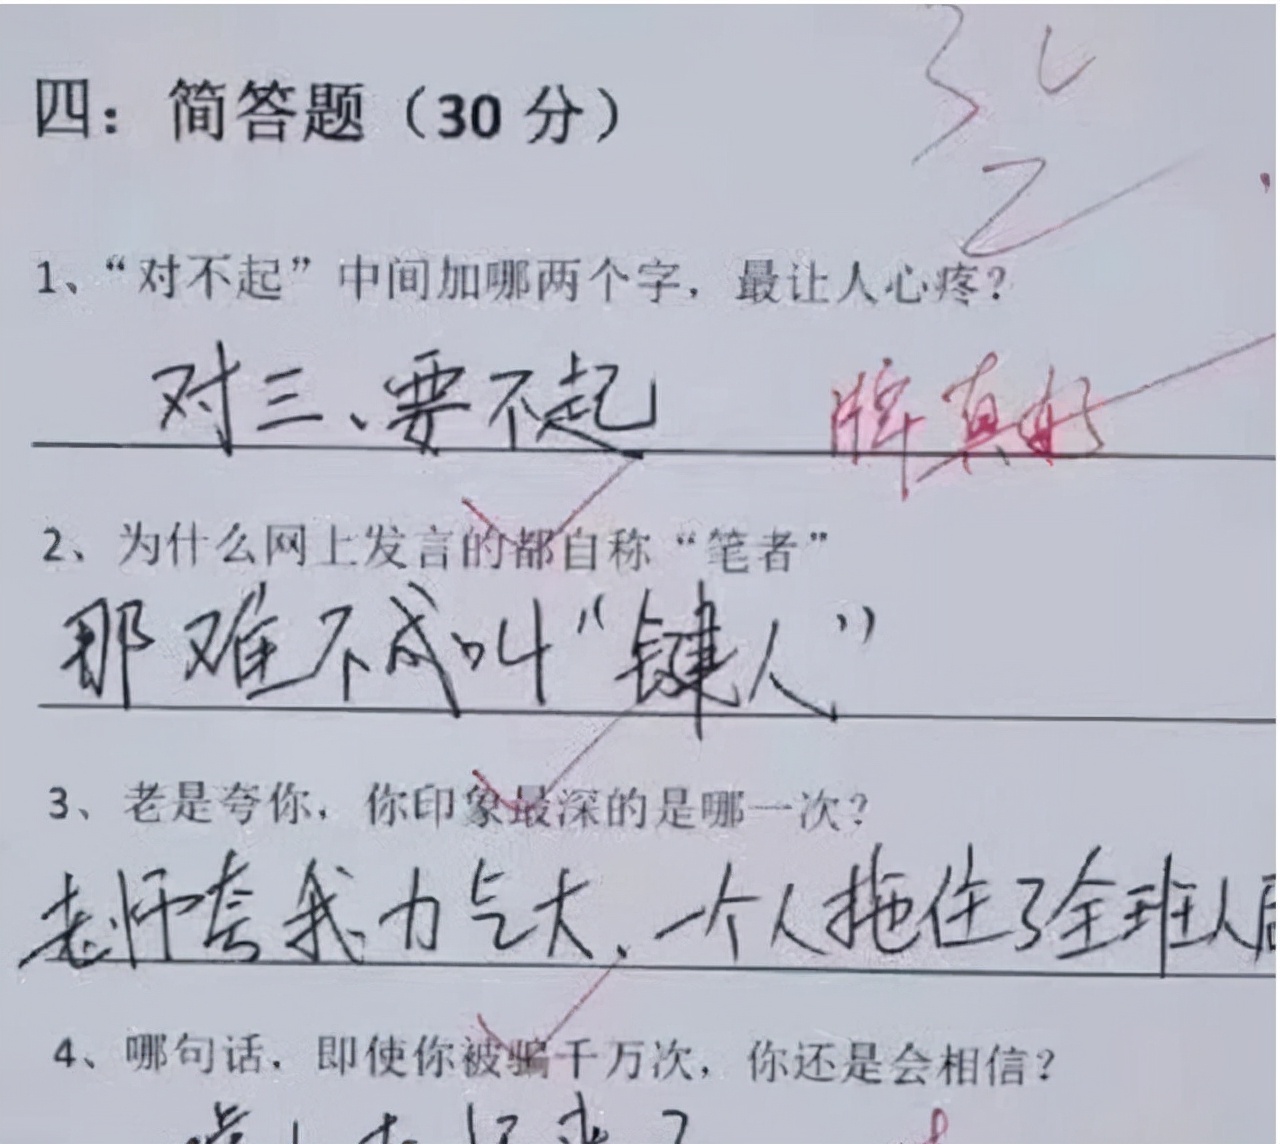 四：简答题（30 分）
1、“对不起”中间加哪两个字，最让人心疼？
对三、要不起
牌真好
2、为什么网上发言的都自称“笔者”
那难不成叫“键人”
3、老是夸你，你印象最深的是哪一次？
老师夸我力气大，一个人拖住了全班人
4、哪句话，即使你被骗千万次，你还是会相信？